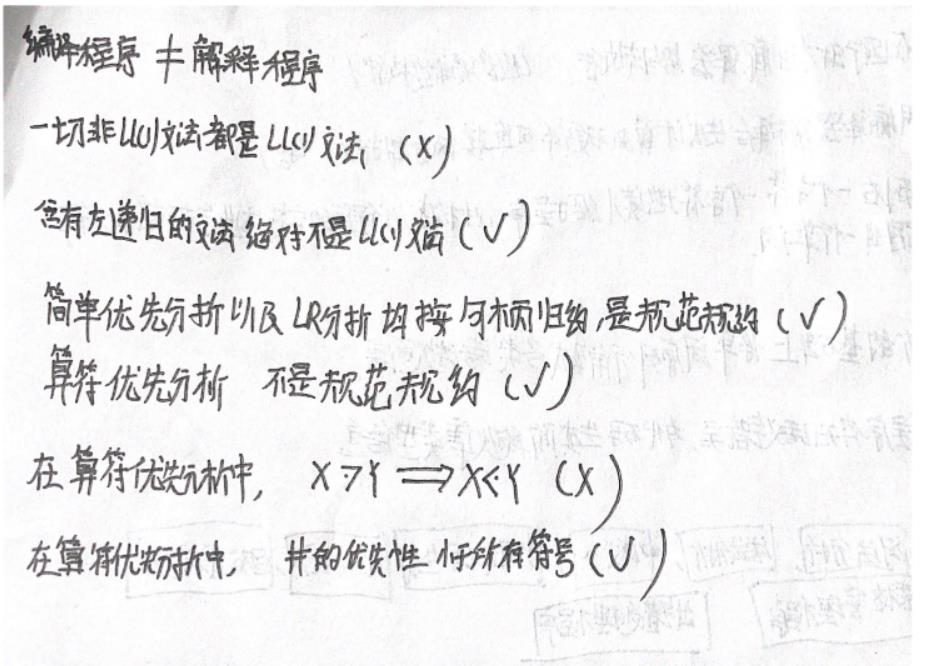 编译程序 ≠ 解释程序
一切非LL(1)文法都是LL(1)文法 (X)
含有左递归的文法绝对不是LL(1)文法 (√)
简单优先分析以及LR分析均按句柄归约,是规范规约 (√)
算符优先分析 不是规范规约 (√)
在算符优先分析中, X⋗Y ⟹ X⋖Y (X)
在算符优先分析中, #的优先性低于所有符号 (√)